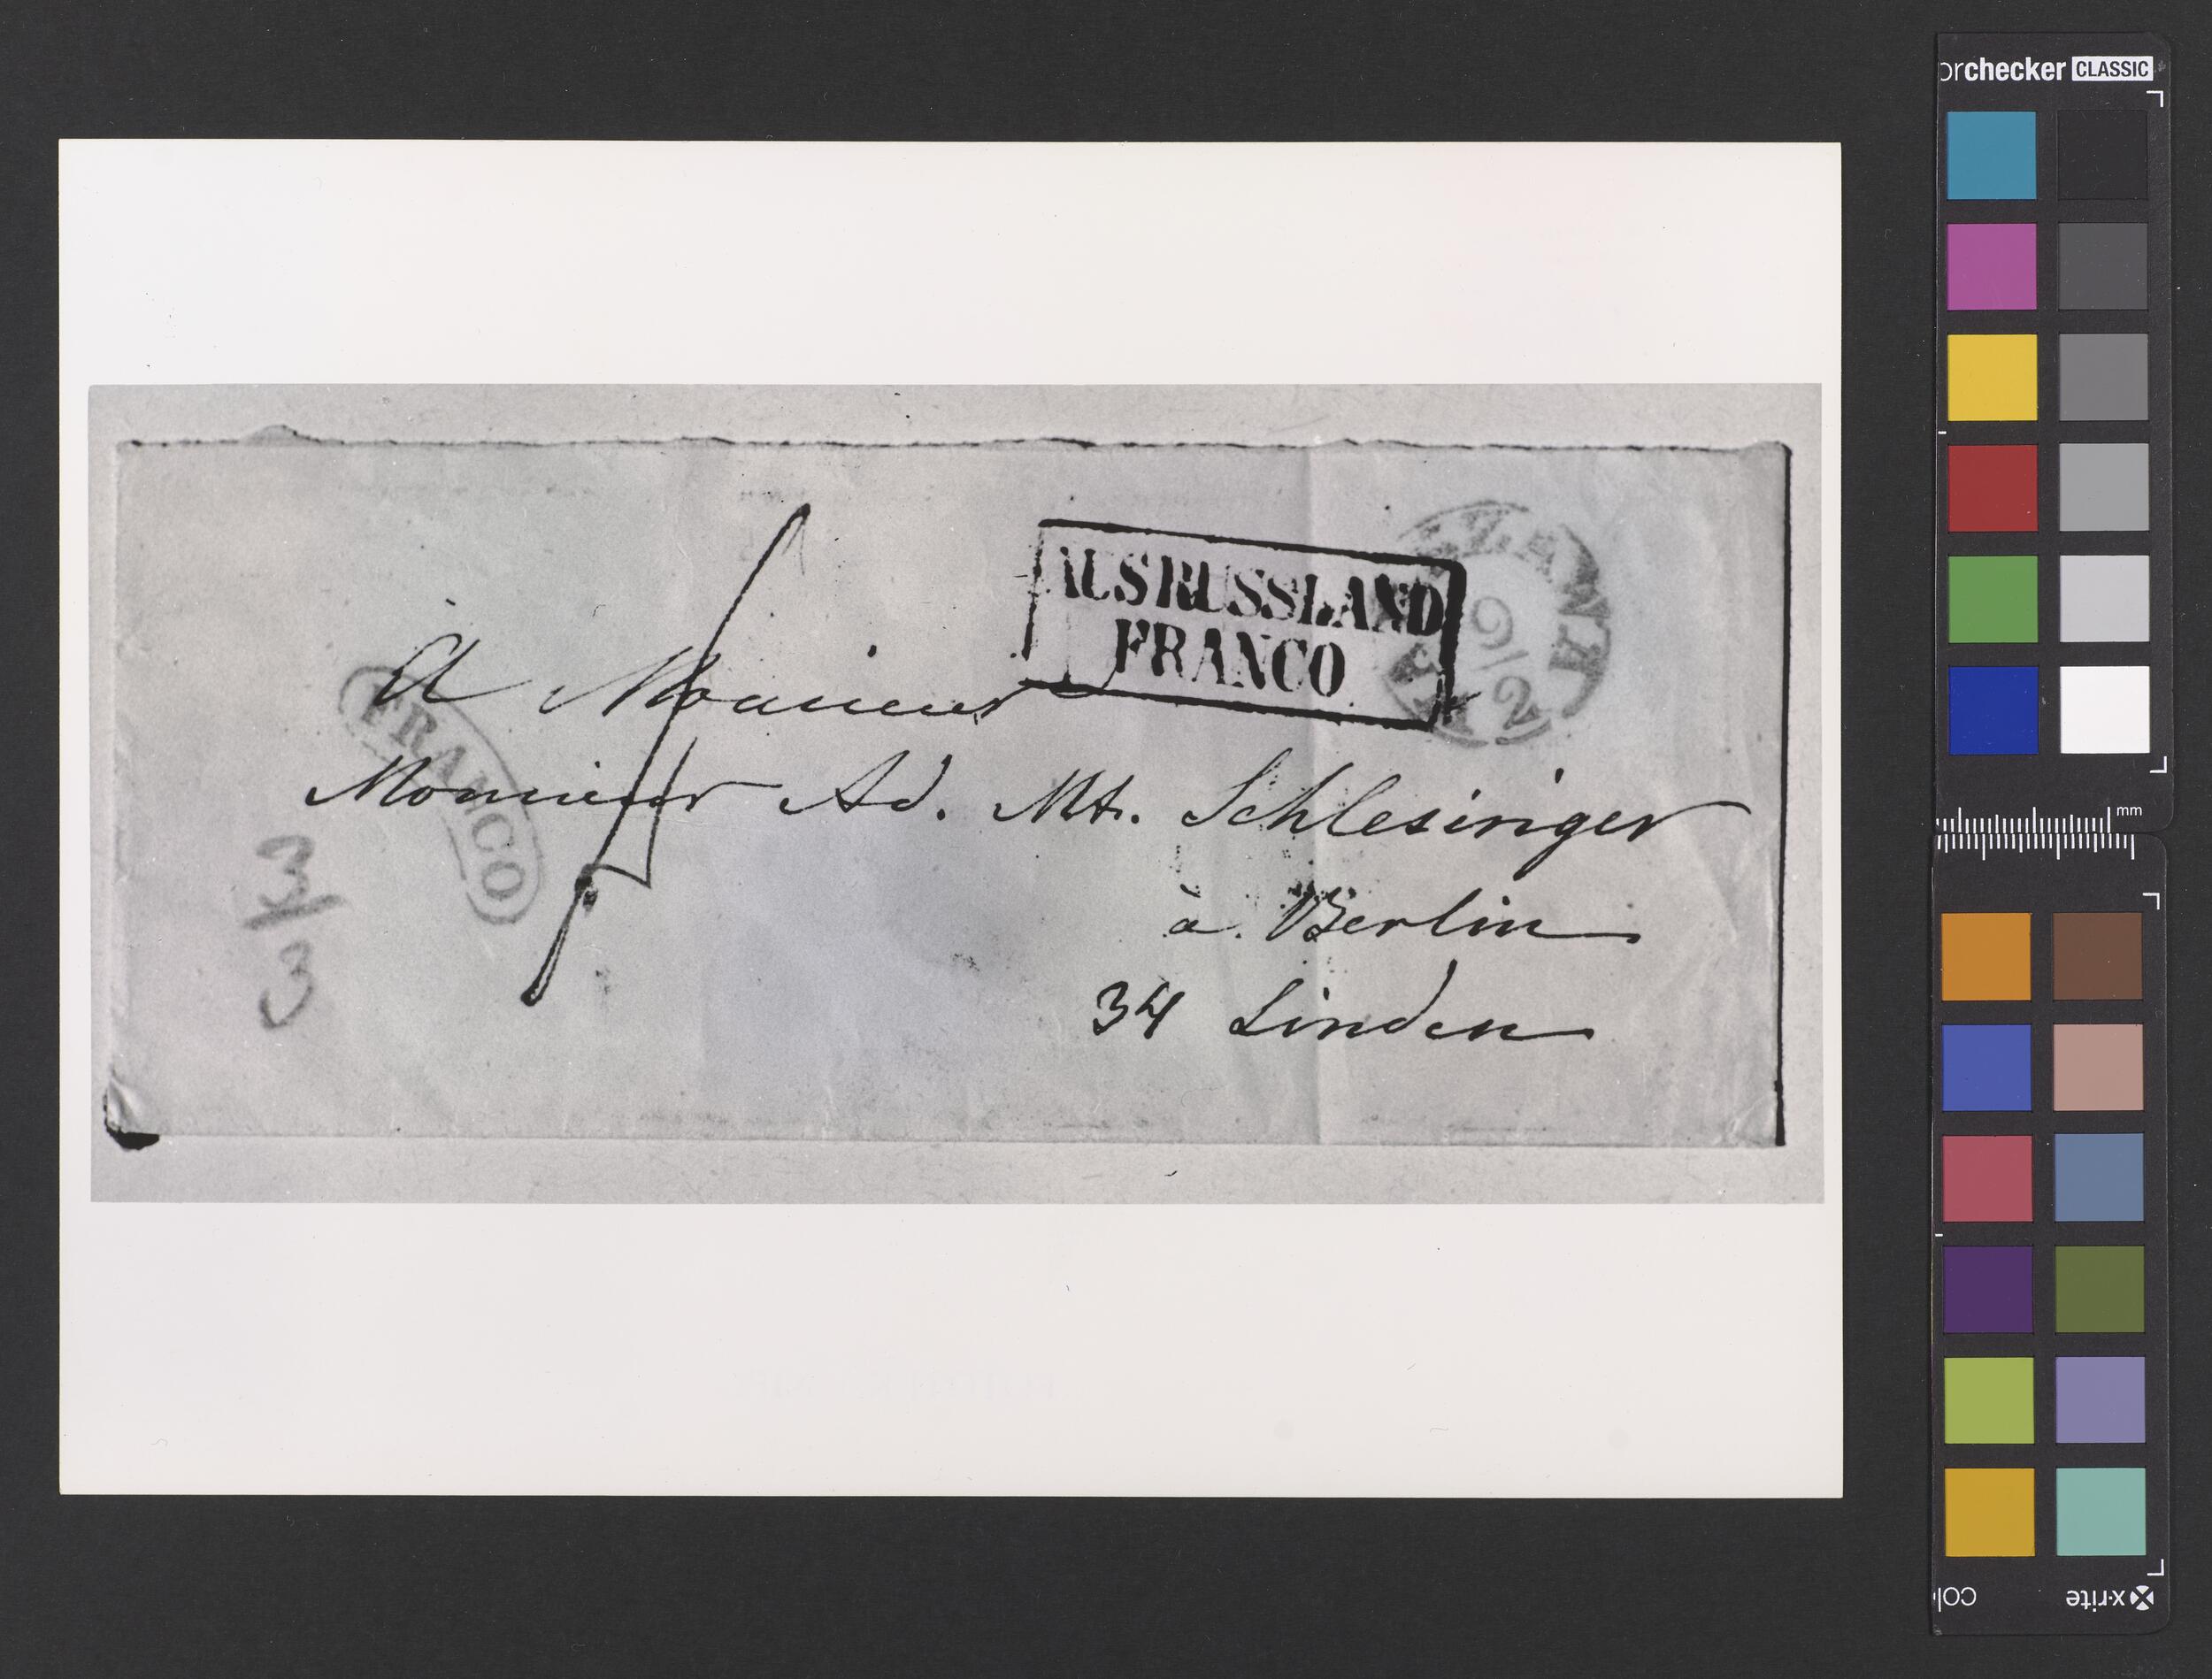 orchecker CLASSIC
AUS RUSSLAND
FRANCO
9/2
A Monsieur
FRANCO
Monsieur Ad. Mt. Schlesinger
à Berlin
34 Linden
3/3
mm
x-rite
col